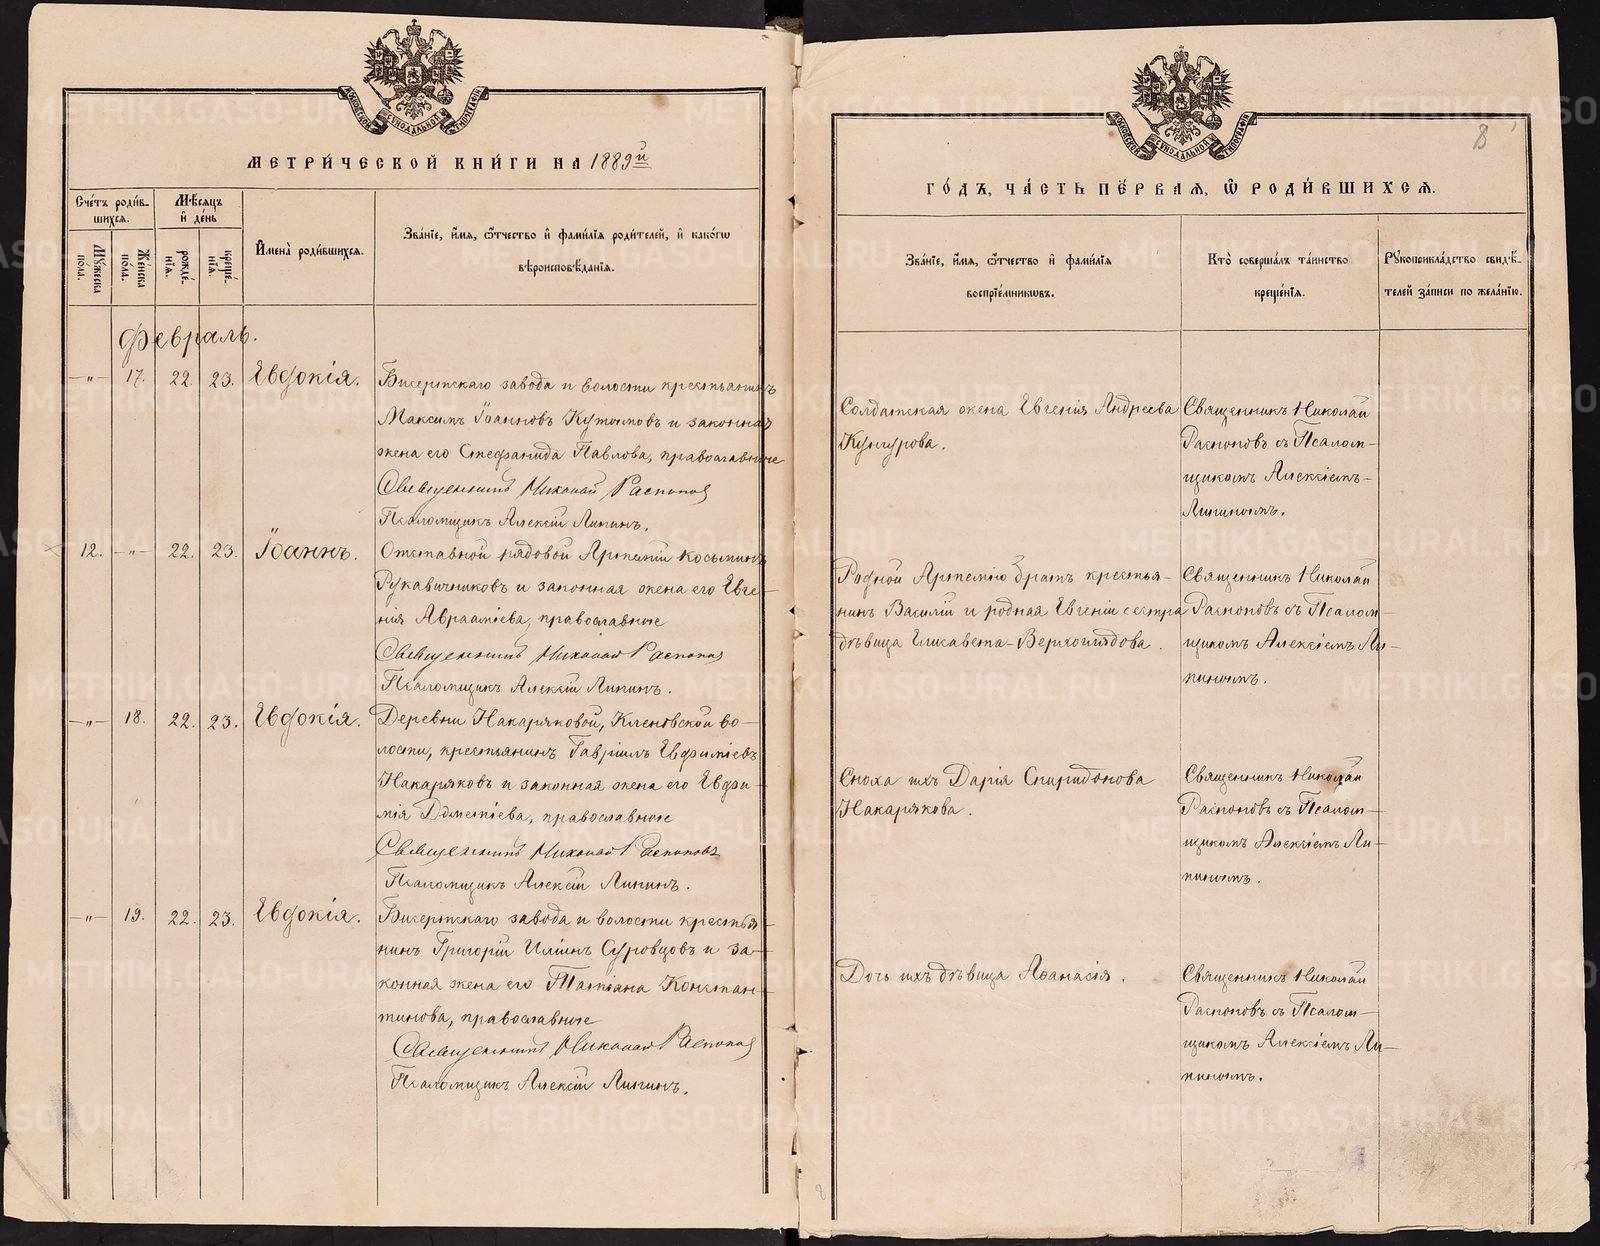 МОСКОВСКОЙ СѴНОДАЛЬНОЙ ТИПОГРАФІИ
МЕТРИ́ЧЕСКОЙ КНИ́ГИ НА 1889й
Сче́тъ роди́в-
шихсѧ.
Мꙋжеска по́ла.
Же́нска по́ла.
Мѣ́сѧцъ и҆ де́нь
рожде́-нїѧ.
креще́-нїѧ.
И҆мена̀ роди́вшихсѧ.
Зва́нїе, и҆́мѧ, ѻ҆́тчество и҆ фами́лїѧ роди́телей, и҆ како́гѡ
вѣроисповѣ́данїѧ.
Февраль.
—„— 17. 22. 23. Евдокія.
Бисертскаго завода и волости крестьянинъ
Максимъ Іоанновъ Кутямовъ и законная
жена его Стефанида Павлова, православные
Священникъ Николай Распопов
Псаломщикъ Алексій Липинъ.
12. —„— 22. 23. Іоаннъ.
Отставной рядовой Артемій Косьминъ
Рукавичниковъ и законная жена его Евге-
нія Авраамiева, православные
Священникъ Николай Распопов
Псаломщикъ Алексій Липинъ.
—„— 18. 22. 23. Евдокія.
Деревни Накаряковой, Кленовской во-
лости, крестьянинъ Гавріилъ Евфиміевъ
Накаряковъ и законная жена его Евфи-
мія Дометіева, православные
Священникъ Николай Распоповъ
Псаломщикъ Алексій Липинъ.
—„— 19. 22. 23. Евдокія.
Бисертскаго завода и волости крестья-
нинъ Григорій Иліинъ Суровцовъ и за-
конная жена его Татіана Констан-
тинова, православные
Священникъ Николай Распопов
Псаломщикъ Алексій Липинъ.
МОСКОВСКОЙ СѴНОДАЛЬНОЙ ТИПОГРАФІИ
8
ГО́ДЪ, ЧА́СТЬ ПЕ́РВАѦ, Ѡ҆ РОДИ́ВШИХСѦ.
Зва́нїе, и҆́мѧ, ѻ҆́тчество и҆ фами́лїѧ
воспрїе́мникѡвъ.
Кто̀ соверша́лъ та́инство
креще́нїѧ.
Рꙋкоприкла́дство свидѣ́-
телей за́писи по жела́нїю.
Солдатская жена Евгенія Андреева
Кунгурова.
Священникъ Николай
Распоповъ съ Псалом-
щикомъ Алексіемъ-
Липинымъ.
Родной Артемію братъ крестья-
нинъ Василій и родная Евгеніи сестра
дѣвица Елисавета Верхоглядова.
Священникъ Николай
Распоповъ съ Псалом-
щикомъ Алексіемъ Ли-
пинымъ.
Сноха ихъ Дарія Спиридонова
Накарякова.
Священникъ Николай
Распоповъ съ Псалом-
щикомъ Алексіемъ Ли-
пинымъ.
Дочь ихъ дѣвица Аѳанасія.
Священникъ Николай
Распоповъ съ Псалом-
щикомъ Алексіемъ Ли-
пинымъ.
METRIKI.GASO-URAL.RU